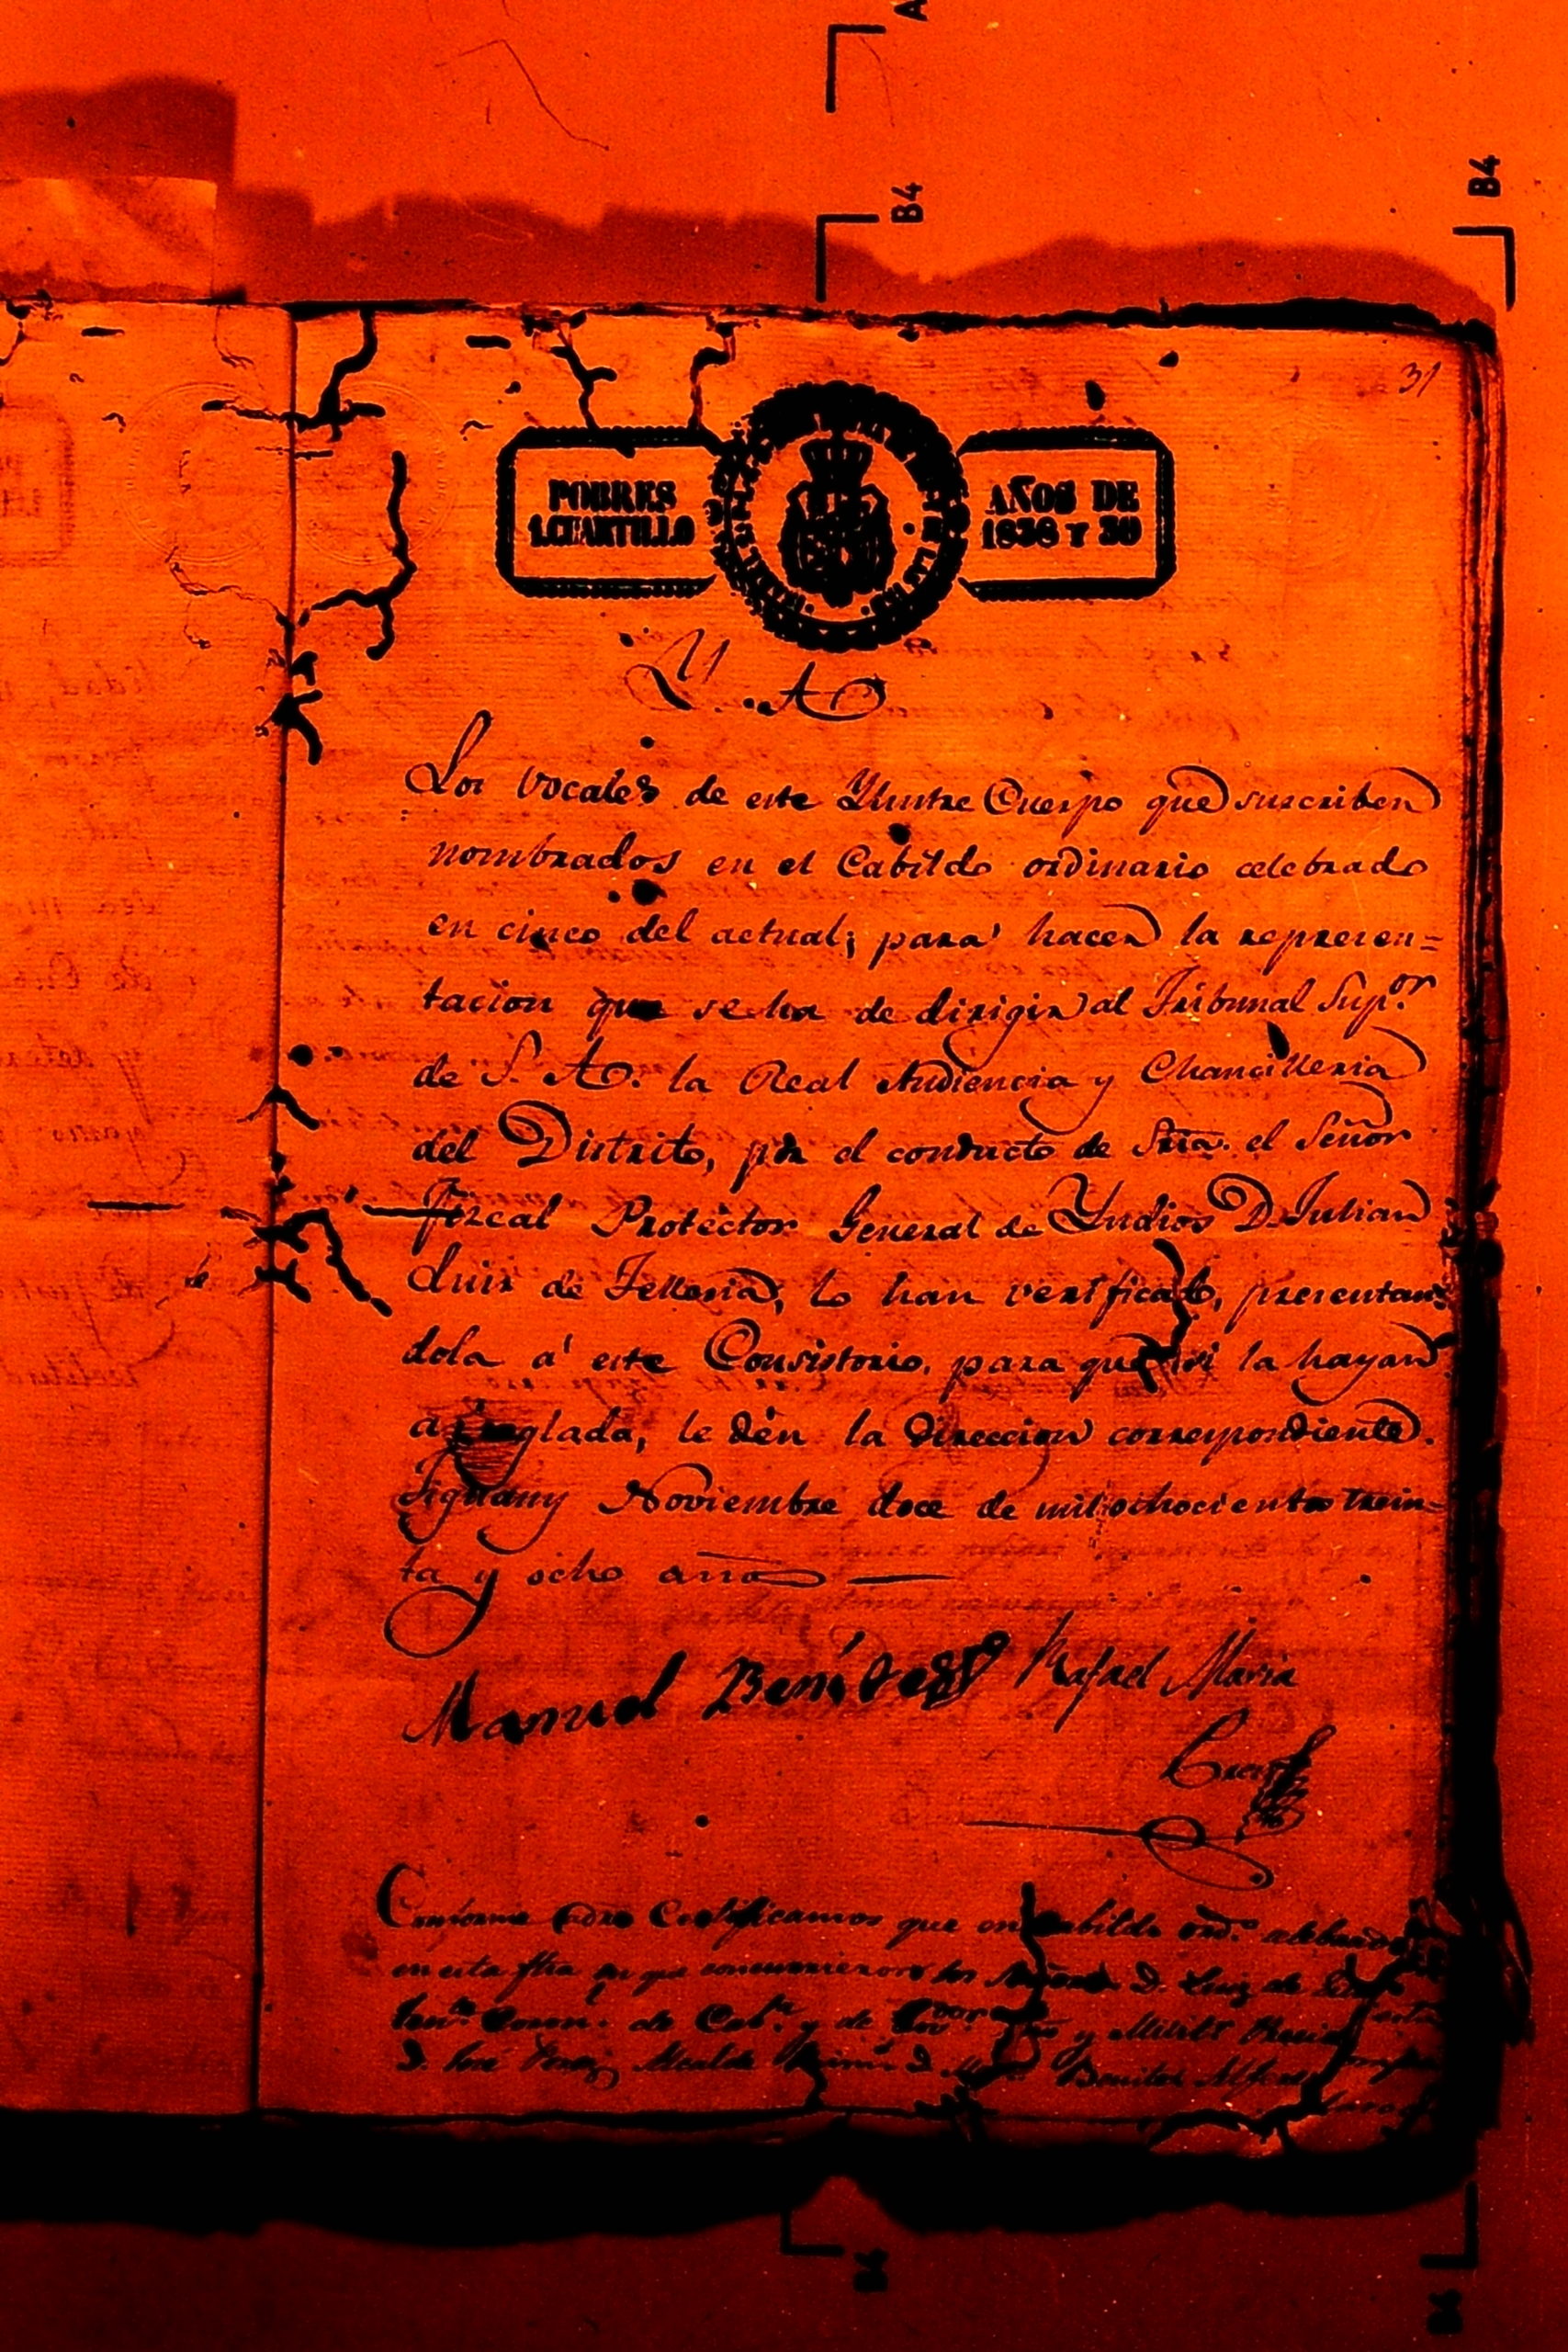 A
B4
B4
31
POBRES
1.CUARTILLO
AÑOS DE
1838 Y 39
Y. A
Los vocales de este Ylustre Cuerpo que suscriben
nombrados en el Cabildo ordinario celebrado
en cinco del actual, para hacer la represen=
tacion que se ha de dirigir al Tribunal Sup.or
de S. A. la Real Audiencia y Chancilleria
del Distrito, por el conducto de Sria. el Señor
Fizcal Protector General de Yndios D. Julian
Luis de Telleria, lo han verificado, presentan=
dola á este Consistorio, para que si la hayan
arreglada, le dén la direccion correspondiente.
Jiguany Noviembre doce de mil ochocientos trein=
ta y ocho años
Manuel Benites Rafael Maria
Conforme Certificamos que en Cabildo ord.o celebrado
en esta fha en que concurrieron los Señores D. Luiz de
de Cab.a y de
D. José Alcalde D. Benites Alferes
B4
B4